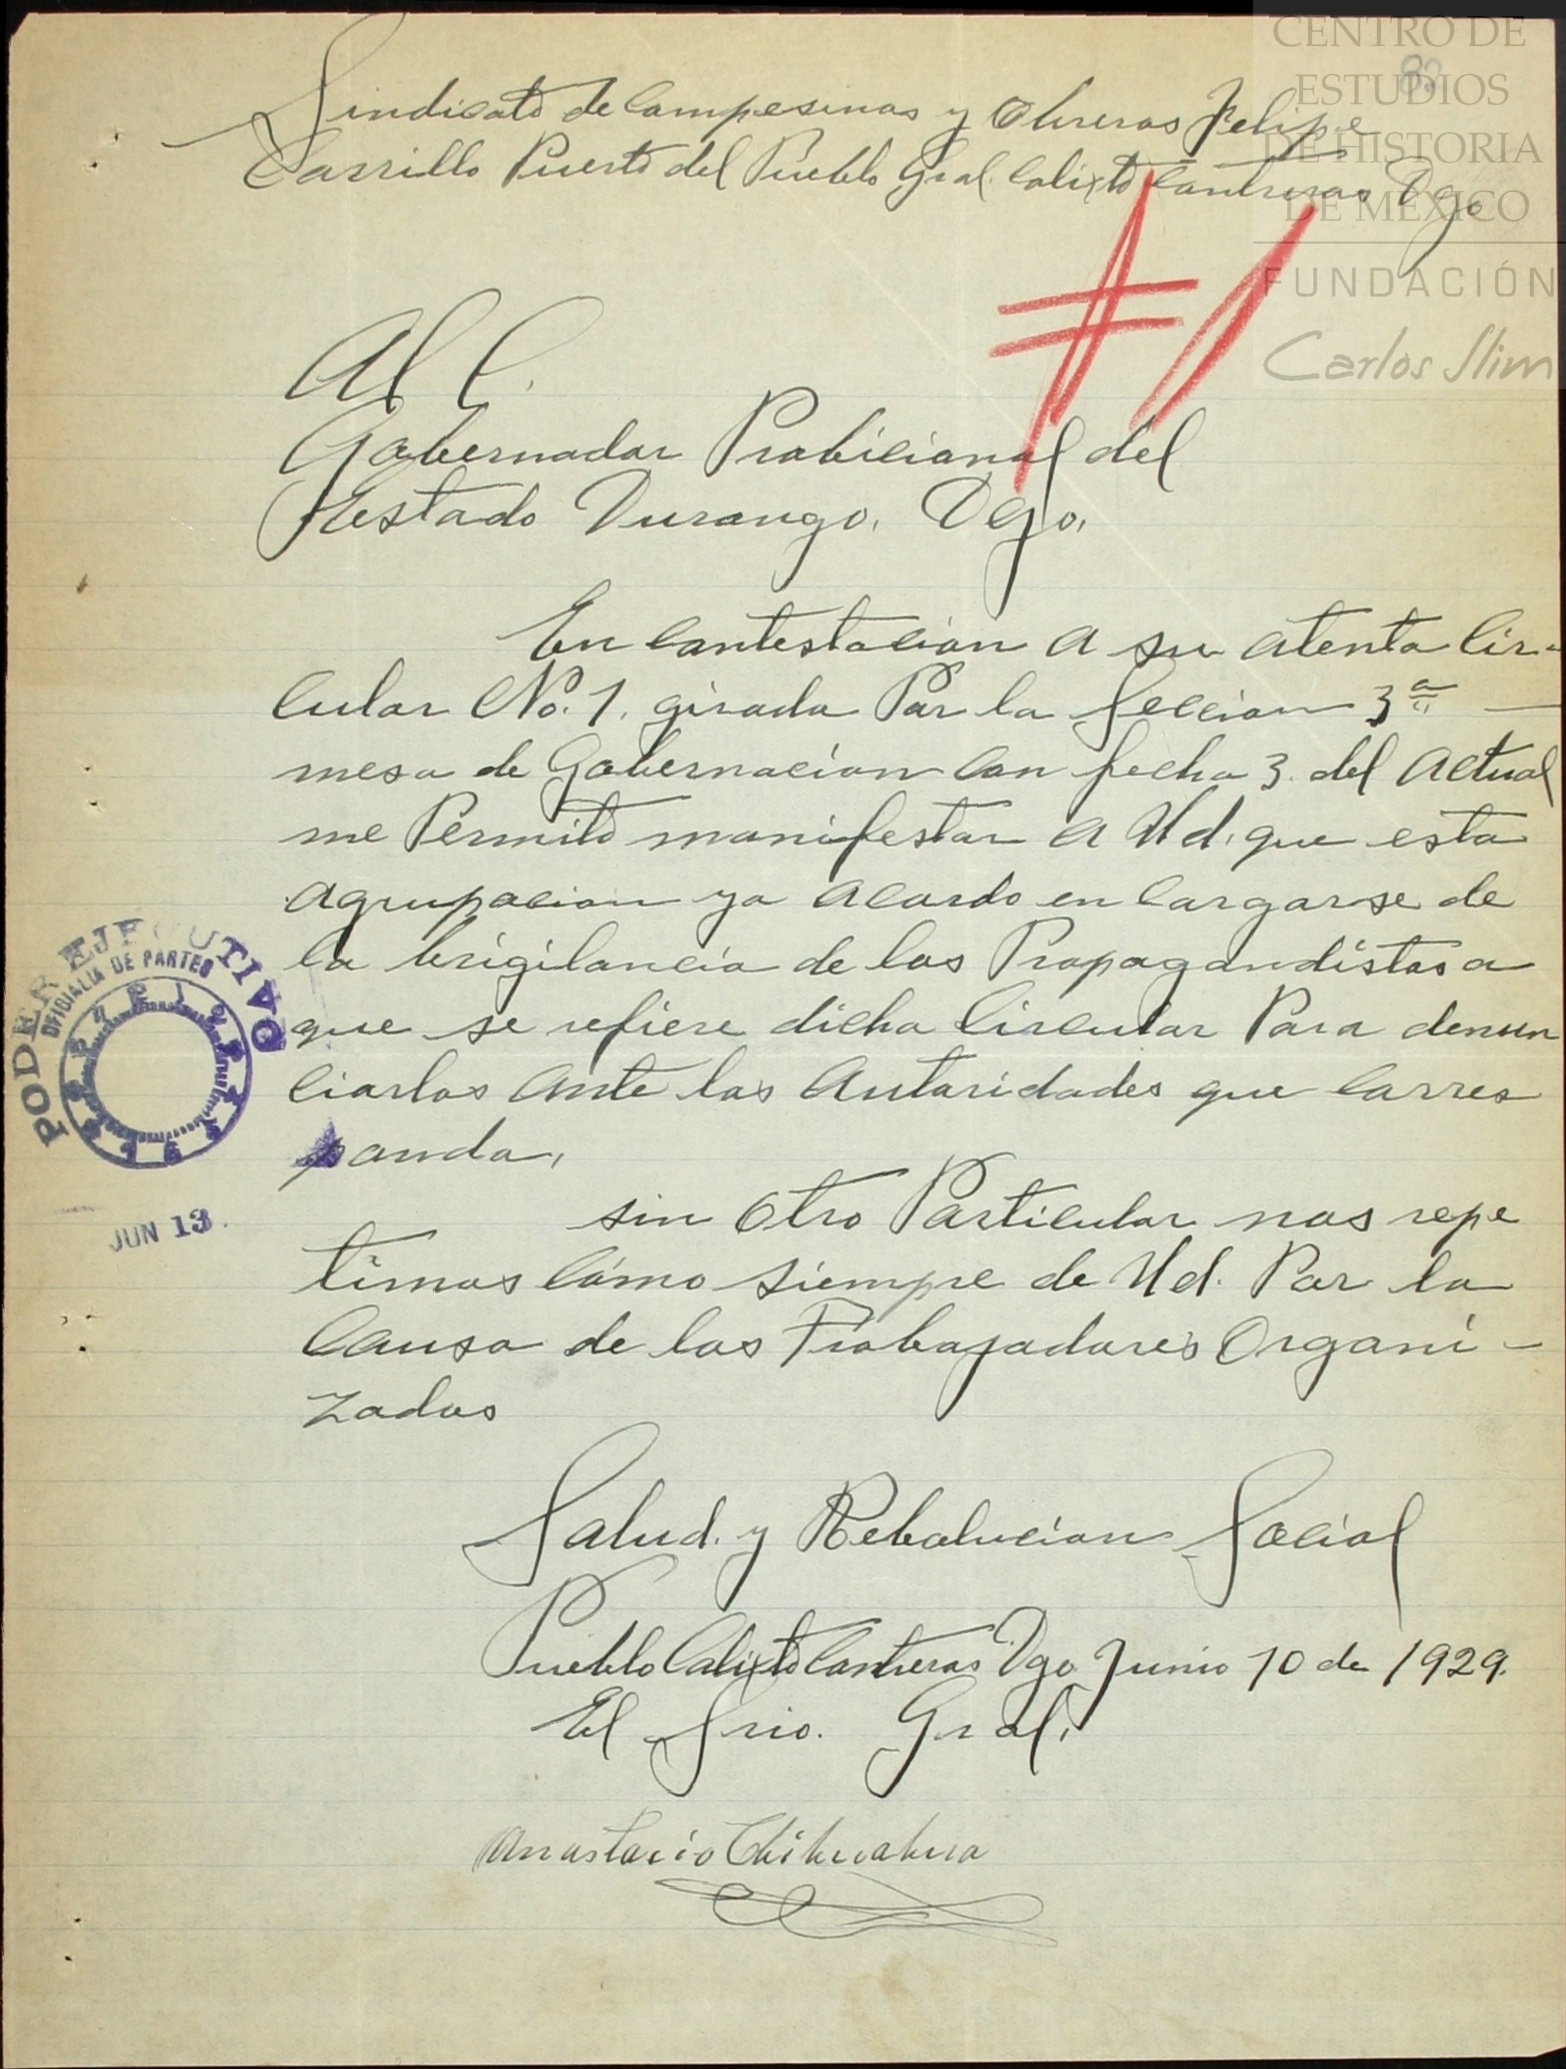 CENTRO DE
ESTUDIOS
DE HISTORIA
DE MÉXICO
FUNDACIÓN
Carlos Slim
Sindicato de Campesinos y Obreros Felipe
Carrillo Puerto del Pueblo Gral. Calixto Contreras Dgo
Al C.
Gobernador Probicional del
Estado Durango. Dgo.
En contestacion a su atenta Cir-
cular No. 1. girada Por la Seccion 3a
mesa de Gobernacion con fecha 3. del Actual
me Permito manifestar a Ud. que esta
agrupacion ya acordo en cargarse de
la brigilancia de los Propagandistas a
que se refiere dicha Circular Para denun
ciarlos ante las Autoridades que corres
ponda,
sin Otro Particular nos repe
timos cómo siempre de Ud. Por la
Causa de los Trabajadores Organi-
zados
Salud. y Rebolucion Social
Pueblo Calixto Contreras Dgo Junio 10 de 1929.
El Srio. Gral.
Anastacio Chihuahua
PODER EJECUTIVO
OFICIALIA DE PARTES
JUN 13.